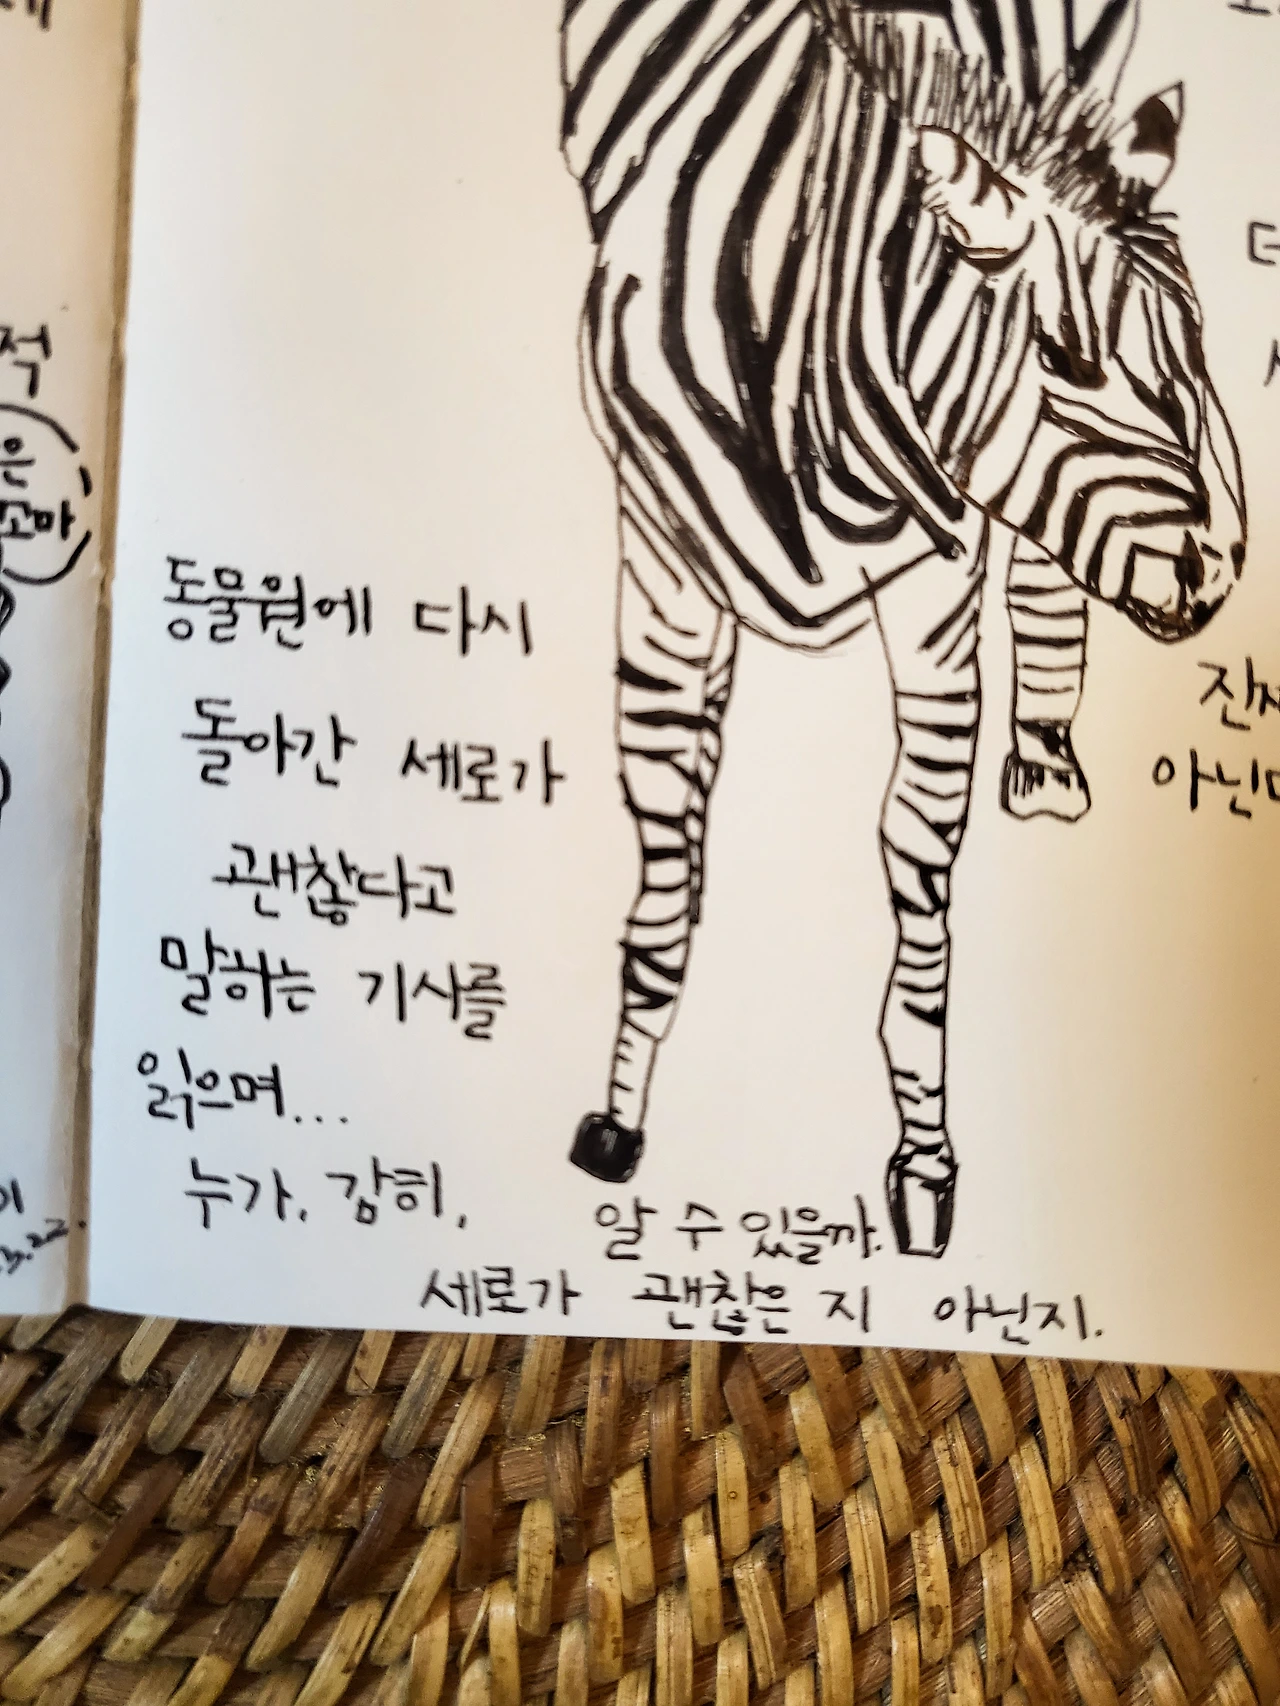 적
은
동물원에 다시
돌아간 세로가
괜찮다고
말하는 기사를
읽으며...
누가, 감히,
알 수 있을까.
세로가 괜찮은 지 아닌지.